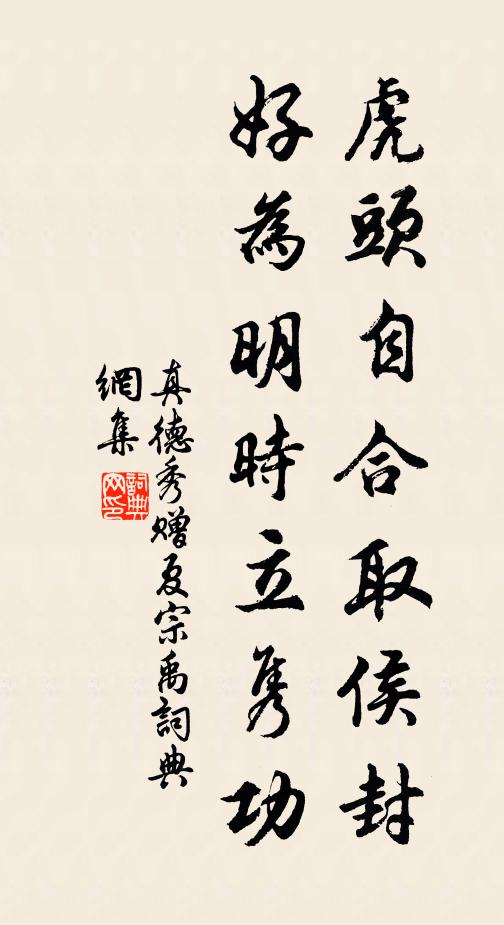 虎頭自合取侯封
好為明時立雋功
真德秀贈夏宗禹詞典
網集
詞典
网印